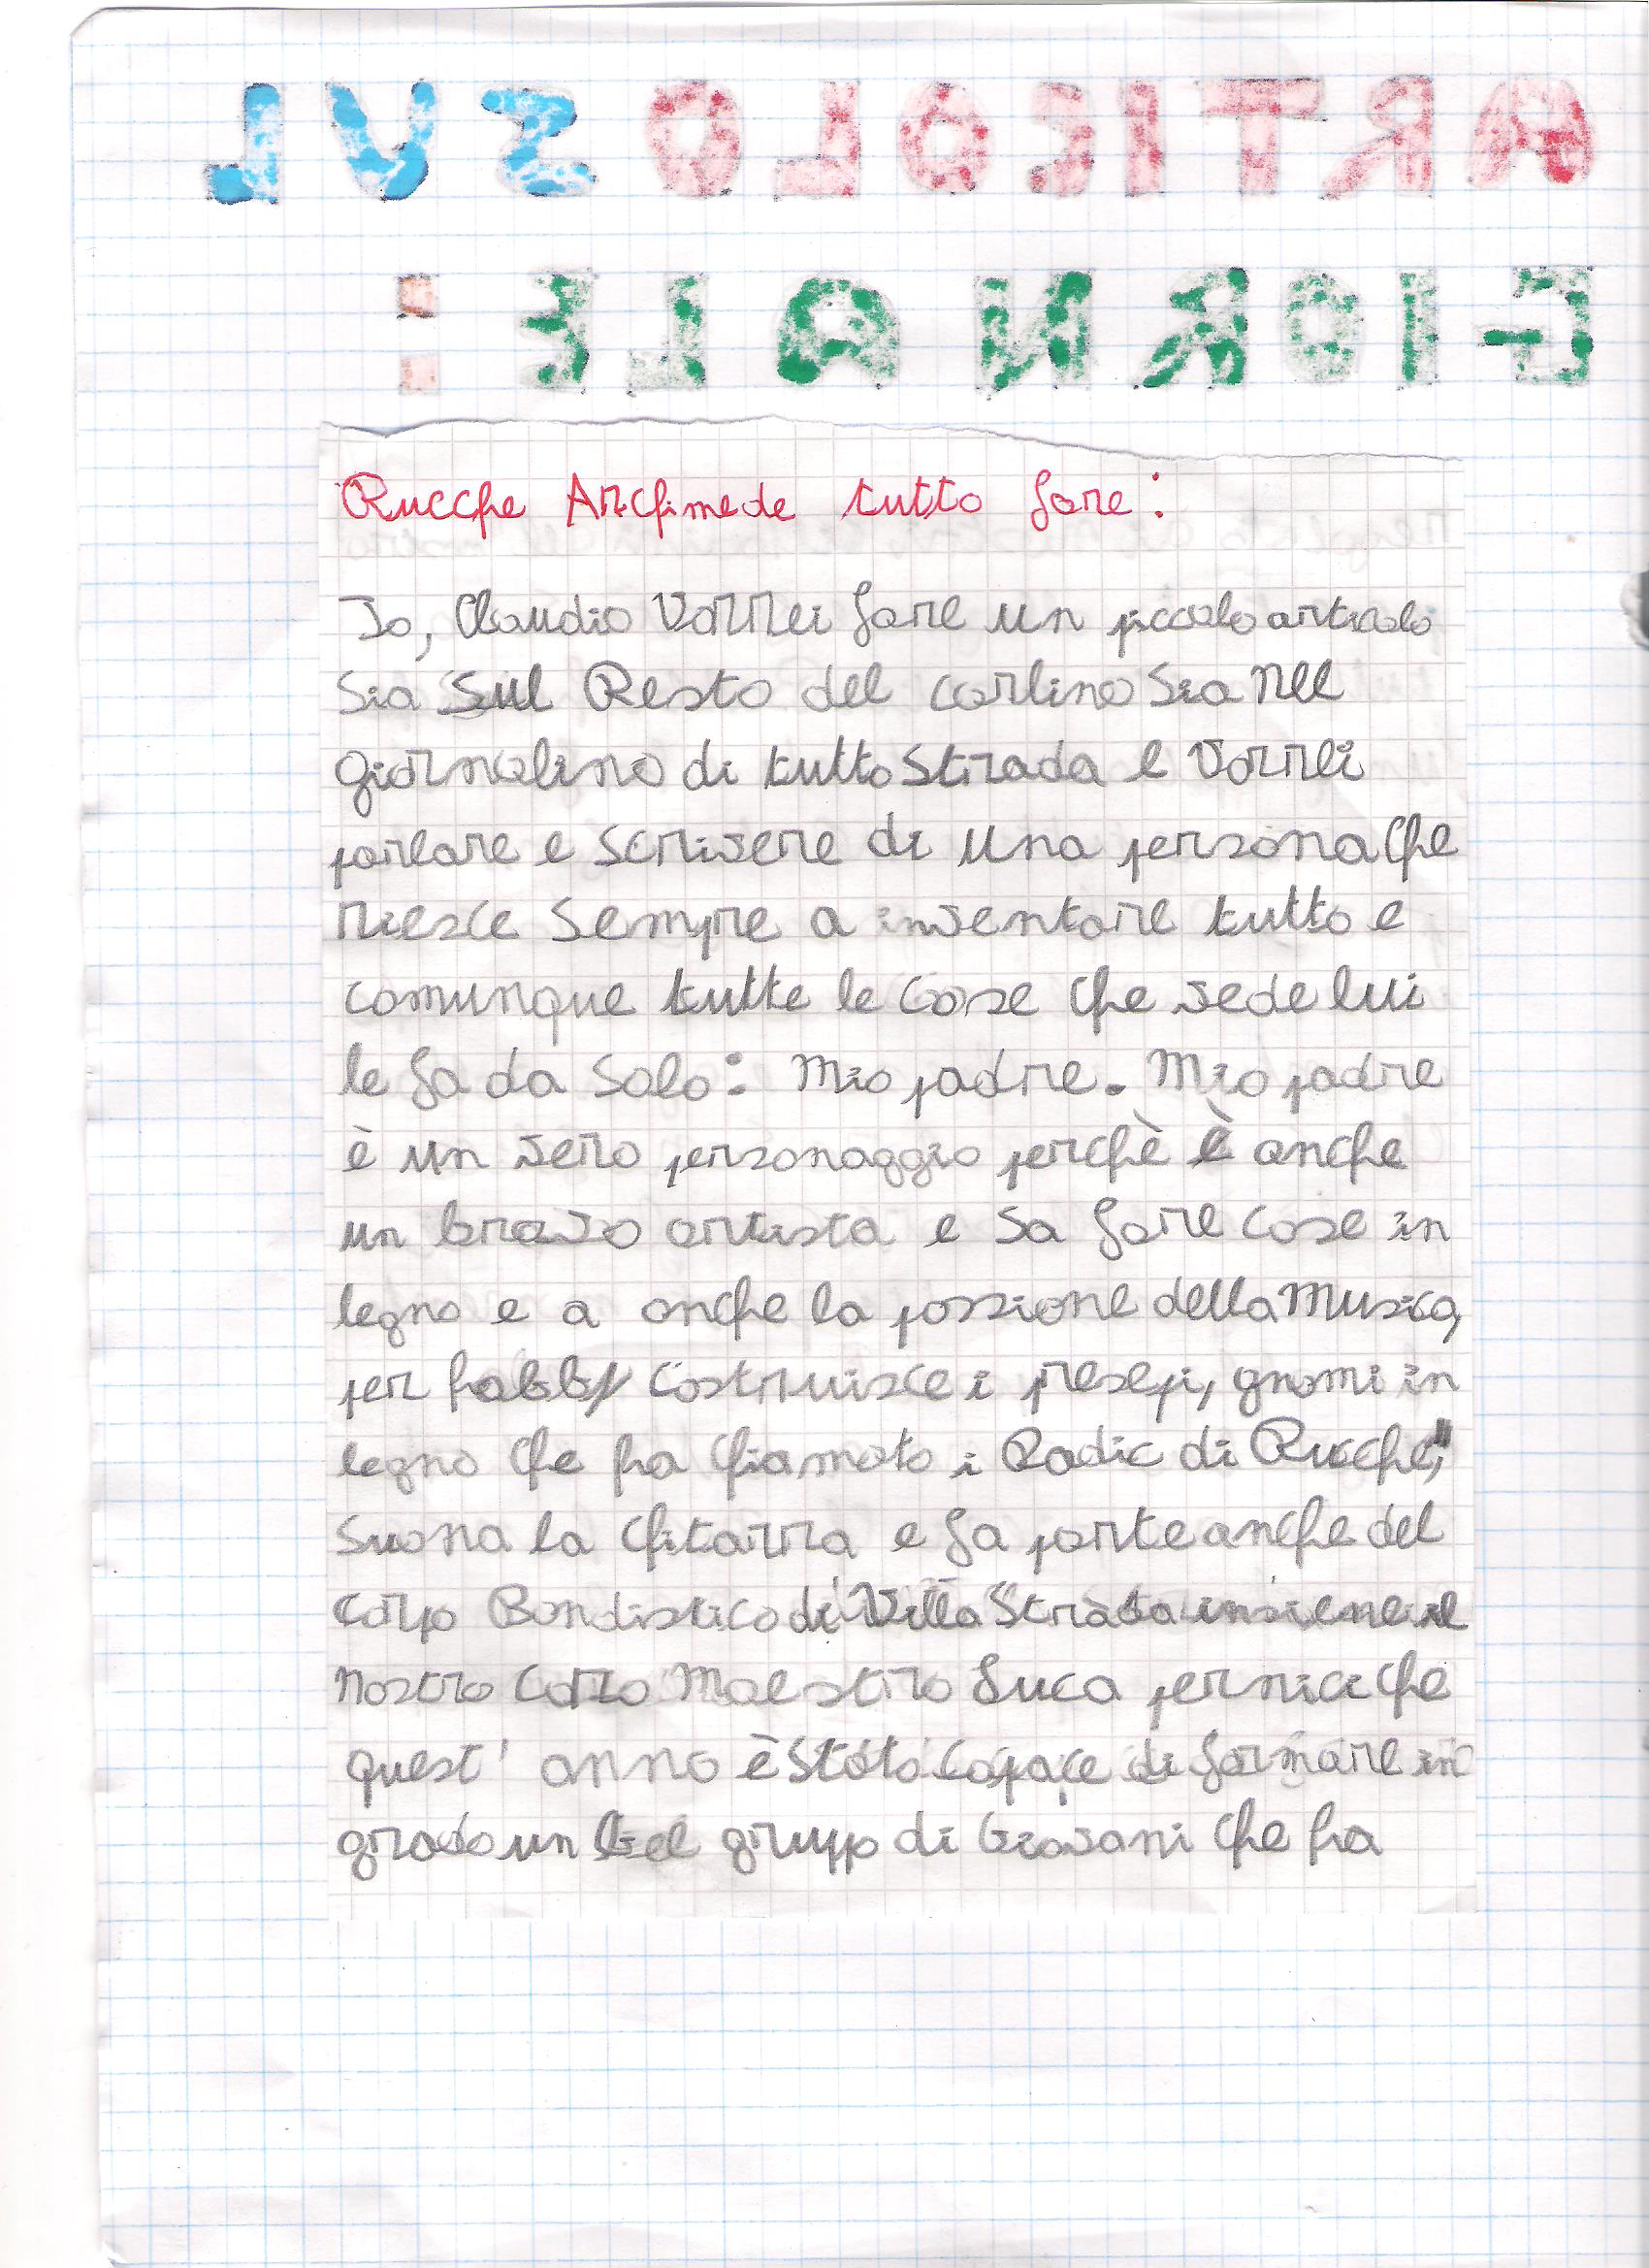 ARTICOLO SUL
GIORNALE :
Rucche Archimede tutto fare:
Io, Claudio Vorrei fare un piccolo articolo
Sia Sul Resto del carlino Sia nel
giornalino di tutto Strada e Vorrei
parlare e scrivere di una persona che
riesce Sempre a inventare tutto e
comunque tutte le cose che vede lui
le fa da solo: Mio padre. Mio padre
è un vero personaggio perchè è anche
un bravo artista e sa fare cose in
legno e a anche la passione della Musica,
per hobby costruisce i presepi, gnomi in
legno che ha chiamato i Radic di Rucche",
Suona la chitarra e fa parte anche del
Corpo Bandistico di Villa Strada insieme il
nostro caro Maestro Luca pernici che
quest' anno è stato capace di formare in
grado un bel grupp di Giovani che ha